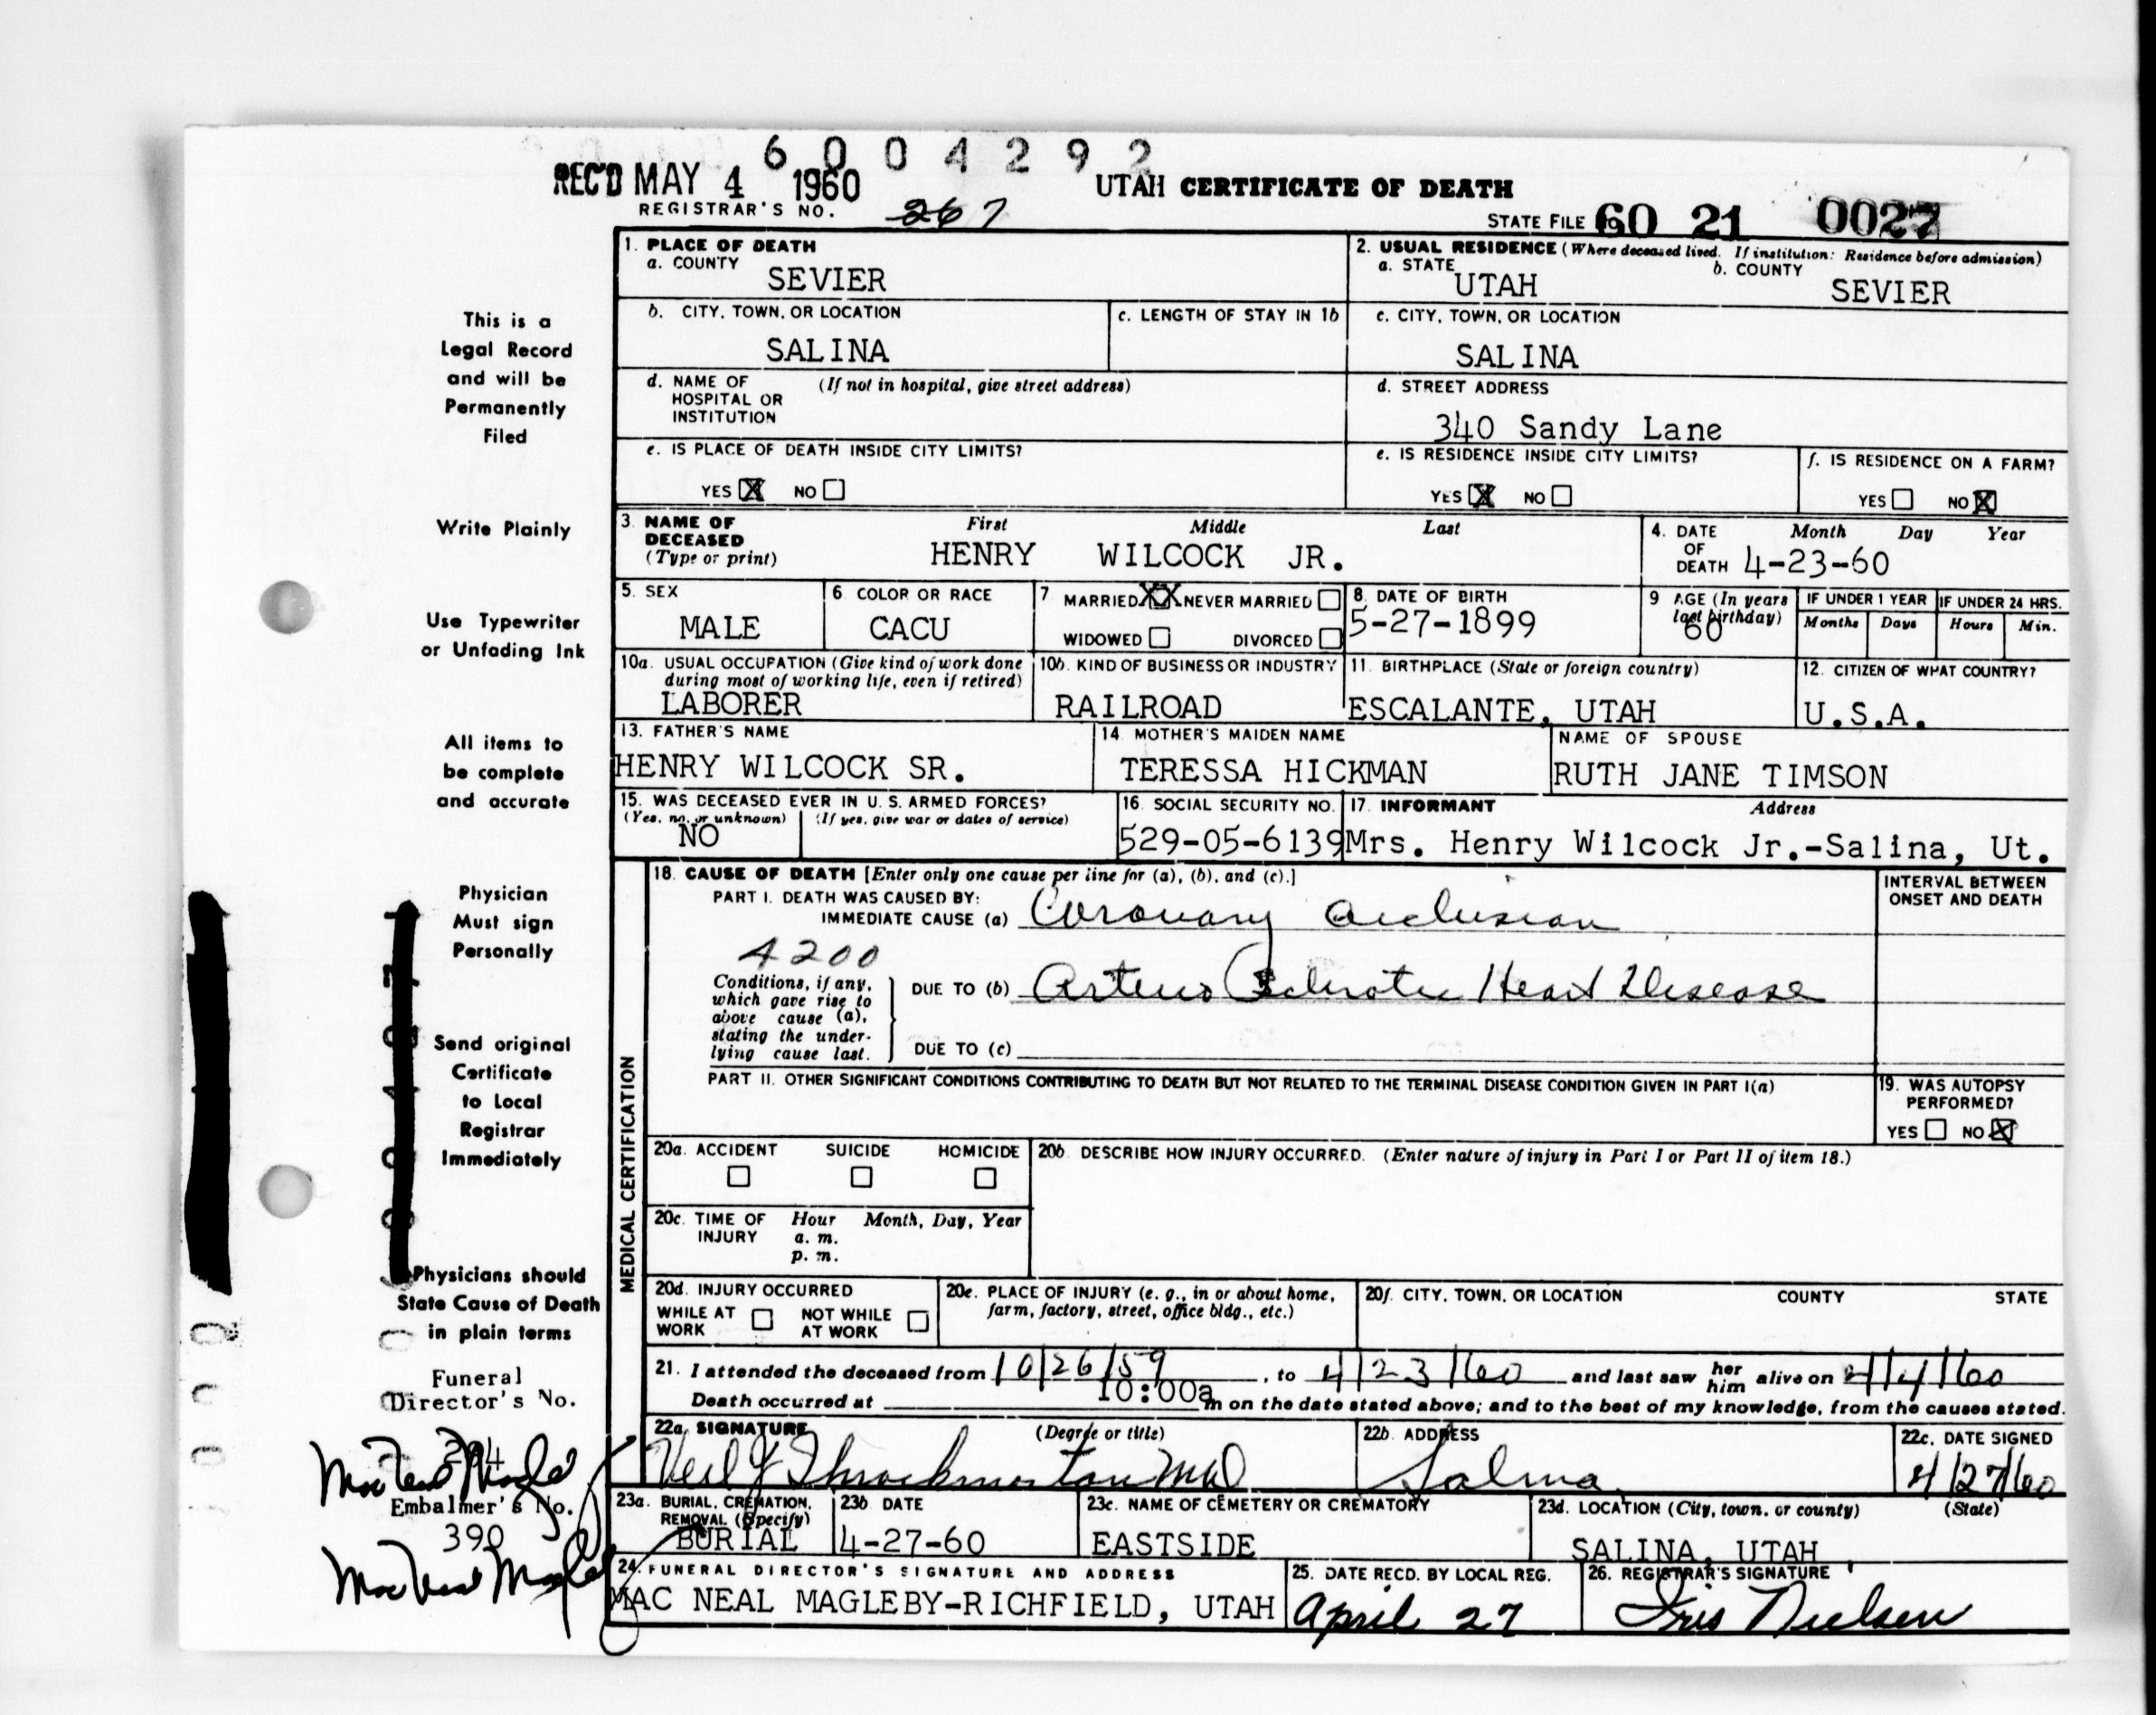 6004292
REC'D MAY 4 1960
UTAH CERTIFICATE OF DEATH
REGISTRAR'S NO. 267
STATE FILE NO. 60 21 0027
This is a
Legal Record
and will be
Permanently
Filed
Write Plainly
Use Typewriter
or Unfading Ink
All items to
be complete
and accurate
Physician
Must sign
Personally
Send original
Certificate
to Local
Registrar
Immediately
Physicians should
State Cause of Death
in plain terms
Funeral
Director's No.
Embalmer's No.
390
1. PLACE OF DEATH
a. COUNTY
SEVIER
2. USUAL RESIDENCE (Where deceased lived. If institution: Residence before admission)
a. STATE UTAH b. COUNTY SEVIER
b. CITY, TOWN, OR LOCATION
SALINA
c. LENGTH OF STAY IN 1b
c. CITY, TOWN, OR LOCATION
SALINA
d. NAME OF HOSPITAL OR INSTITUTION (If not in hospital, give street address)
d. STREET ADDRESS
340 Sandy Lane
e. IS PLACE OF DEATH INSIDE CITY LIMITS?
YES X NO
e. IS RESIDENCE INSIDE CITY LIMITS?
YES X NO
f. IS RESIDENCE ON A FARM?
YES NO X
3. NAME OF DECEASED (Type or print) First Middle Last
HENRY WILCOCK JR.
4. DATE OF DEATH Month Day Year
4-23-60
5. SEX
MALE
6 COLOR OR RACE
CACU
7 MARRIED XX NEVER MARRIED
WIDOWED DIVORCED
8. DATE OF BIRTH
5-27-1899
9 AGE (In years last birthday)
60
IF UNDER 1 YEAR IF UNDER 24 HRS.
Months Days Hours Min.
10a. USUAL OCCUPATION (Give kind of work done
during most of working life, even if retired)
LABORER
10b. KIND OF BUSINESS OR INDUSTRY
RAILROAD
11. BIRTHPLACE (State or foreign country)
ESCALANTE, UTAH
12. CITIZEN OF WHAT COUNTRY?
U.S.A.
13. FATHER'S NAME
HENRY WILCOCK SR.
14. MOTHER'S MAIDEN NAME
TERESSA HICKMAN
NAME OF SPOUSE
RUTH JANE TIMSON
15. WAS DECEASED EVER IN U. S. ARMED FORCES?
(Yes, no, or unknown) (If yes, give war or dates of service)
NO
16. SOCIAL SECURITY NO.
529-05-6139
17. INFORMANT Address
Mrs. Henry Wilcock Jr.-Salina, Ut.
MEDICAL CERTIFICATION
18. CAUSE OF DEATH [Enter only one cause per line for (a), (b), and (c).]
INTERVAL BETWEEN
ONSET AND DEATH
PART I. DEATH WAS CAUSED BY:
IMMEDIATE CAUSE (a) Coronary occlusion
4200
Conditions, if any,
which gave rise to
above cause (a),
stating the under-
lying cause last.
DUE TO (b) Arterio Sclerotic Heart Disease
DUE TO (c)
PART II. OTHER SIGNIFICANT CONDITIONS CONTRIBUTING TO DEATH BUT NOT RELATED TO THE TERMINAL DISEASE CONDITION GIVEN IN PART I(a)
19. WAS AUTOPSY
PERFORMED?
YES NO X
20a. ACCIDENT SUICIDE HOMICIDE
20b. DESCRIBE HOW INJURY OCCURRED. (Enter nature of injury in Part I or Part II of item 18.)
20c. TIME OF INJURY Hour Month, Day, Year
a. m.
p. m.
20d. INJURY OCCURRED
WHILE AT WORK NOT WHILE AT WORK
20e. PLACE OF INJURY (e. g., in or about home,
farm, factory, street, office bldg., etc.)
20f. CITY, TOWN, OR LOCATION COUNTY STATE
21. I attended the deceased from 10/26/59, to 4/23/60 and last saw her him alive on 4/4/60
Death occurred at 10:00a m on the date stated above; and to the best of my knowledge, from the causes stated.
22a. SIGNATURE (Degree or title)
Throckmorton MD
22b. ADDRESS
Salina
22c. DATE SIGNED
4/27/60
23a. BURIAL, CREMATION, REMOVAL (Specify)
BURIAL
23b DATE
4-27-60
23c. NAME OF CEMETERY OR CREMATORY
EASTSIDE
23d. LOCATION (City, town, or county) (State)
SALINA, UTAH
24. FUNERAL DIRECTOR'S SIGNATURE AND ADDRESS
MAC NEAL MAGLEBY-RICHFIELD, UTAH
25. DATE RECD. BY LOCAL REG.
April 27
26. REGISTRAR'S SIGNATURE
Iris Nielsen